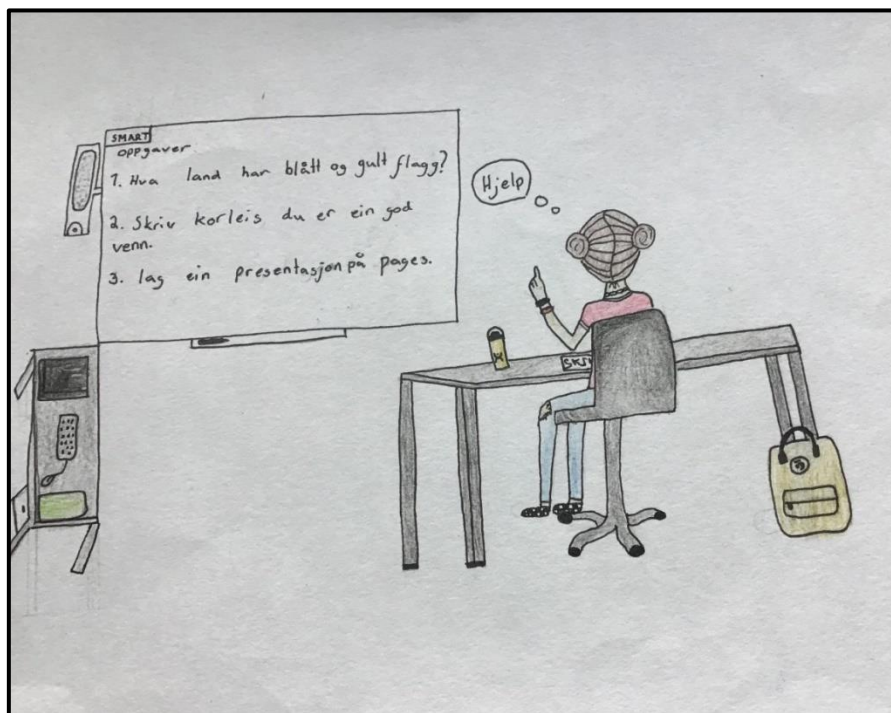 SMART
oppgaver
1. Hva land har blått og gult flagg?
2. Skriv korleis du er ein god
venn.
3. lag ein presentasjon på pages.
Hjelp